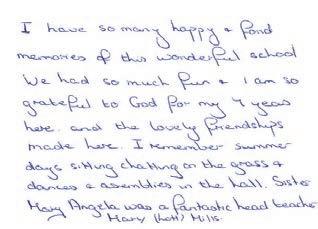 I have so many happy & fond
memories of this wonderful school
We had so much fun & I am so
grateful to God for my 7 years
here. and the lovely friendships
made here. I remember summer
days sitting chatting on the grass &
dances & assemblies in the hall. Sister
Mary Angela was a fantastic head teacher
Mary Mills.